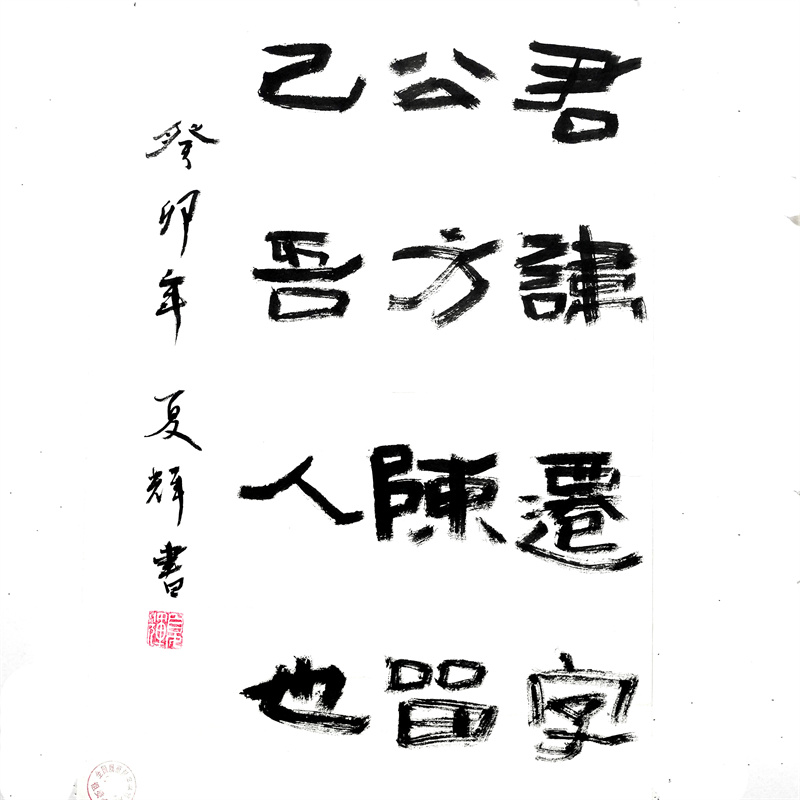 君諱遷字
公方陳留
己吾人也
癸卯年 夏輝書